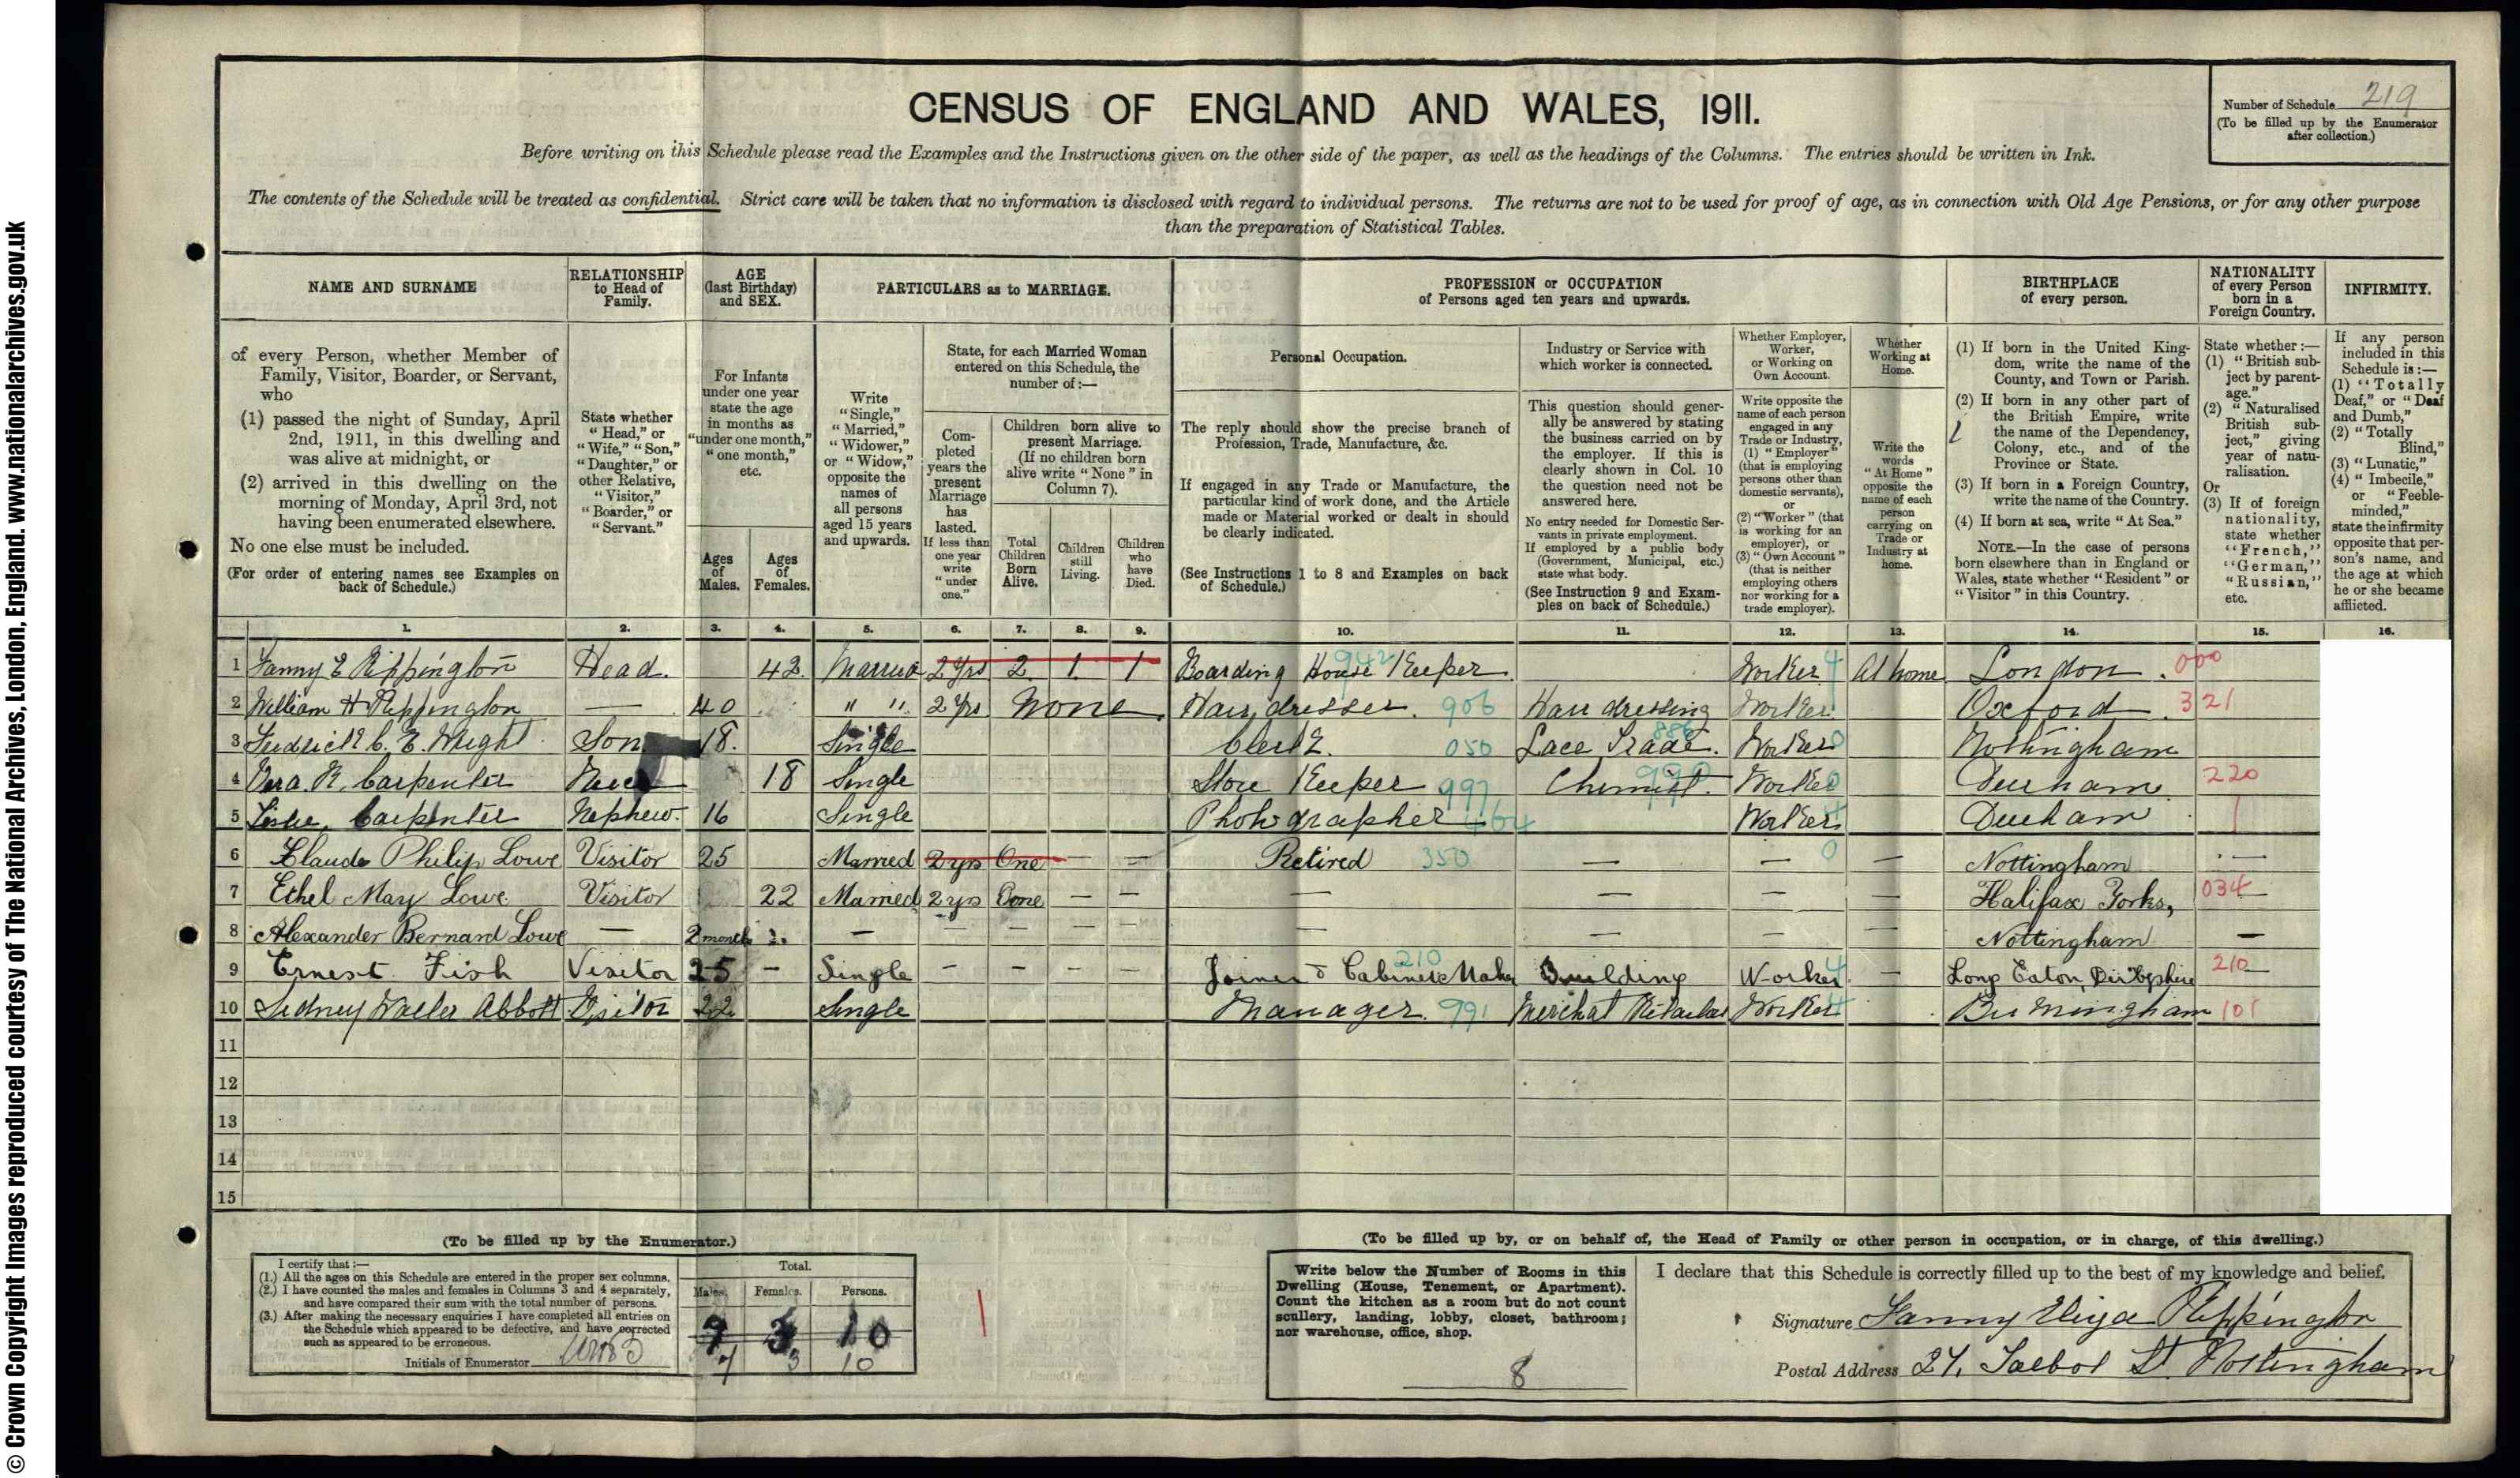 © Crown Copyright Images reproduced courtesy of The National Archives, London, England. www.nationalarchives.gov.uk
CENSUS OF ENGLAND AND WALES, 1911.
Number of Schedule 219
(To be filled up by the Enumerator after collection.)
Before writing on this Schedule please read the Examples and the Instructions given on the other side of the paper, as well as the headings of the Columns. The entries should be written in Ink.
The contents of the Schedule will be treated as confidential. Strict care will be taken that no information is disclosed with regard to individual persons. The returns are not to be used for proof of age, as in connection with Old Age Pensions, or for any other purpose
than the preparation of Statistical Tables.
NAME AND SURNAME
of every Person, whether Member of
Family, Visitor, Boarder, or Servant,
who
(1) passed the night of Sunday, April
2nd, 1911, in this dwelling and
was alive at midnight, or
(2) arrived in this dwelling on the
morning of Monday, April 3rd, not
having been enumerated elsewhere.
No one else must be included.
(For order of entering names see Examples on
back of Schedule.)
RELATIONSHIP
to Head of
Family.
State whether
"Head," or
"Wife," "Son,"
"Daughter," or
other Relative,
"Visitor,"
"Boarder," or
"Servant."
AGE
(last Birthday)
and SEX.
For Infants
under one year
state the age
in months as
"under one month,"
"one month,"
etc.
Ages
of
Males.
Ages
of
Females.
PARTICULARS as to MARRIAGE.
Write
"Single,"
"Married,"
"Widower,"
or "Widow,"
opposite the
names of
all persons
aged 15 years
and upwards.
State, for each Married Woman
entered on this Schedule, the
number of:—
Com-
pleted
years the
present
Marriage
has
lasted.
If less than
one year
write
"under
one."
Children born alive to
present Marriage.
(If no children born
alive write "None" in
Column 7).
Total
Children
Born
Alive.
Children
still
Living.
Children
who
have
Died.
PROFESSION or OCCUPATION
of Persons aged ten years and upwards.
Personal Occupation.
The reply should show the precise branch of
Profession, Trade, Manufacture, &c.
If engaged in any Trade or Manufacture, the
particular kind of work done, and the Article
made or Material worked or dealt in should
be clearly indicated.
(See Instructions 1 to 8 and Examples on back
of Schedule.)
Industry or Service with
which worker is connected.
This question should gener-
ally be answered by stating
the business carried on by
the employer. If this is
clearly shown in Col. 10
the question need not be
answered here.
No entry needed for Domestic Ser-
vants in private employment.
If employed by a public body
(Government, Municipal, etc.)
state what body.
(See Instruction 9 and Exam-
ples on back of Schedule.)
Whether Employer,
Worker,
or Working on
Own Account.
Write opposite the
name of each person
engaged in any
Trade or Industry,
(1) "Employer"
(that is employing
persons other than
domestic servants),
or
(2) "Worker" (that
is working for an
employer), or
(3) "Own Account"
(that is neither
employing others
nor working for a
trade employer).
Whether
Working at
Home.
Write the
words
"At Home"
opposite the
name of each
person
carrying on
Trade or
Industry at
home.
BIRTHPLACE
of every person.
(1) If born in the United King-
dom, write the name of the
County, and Town or Parish.
(2) If born in any other part of
the British Empire, write
the name of the Dependency,
Colony, etc., and of the
Province or State.
(3) If born in a Foreign Country,
write the name of the Country.
(4) If born at sea, write "At Sea."
NOTE.—In the case of persons
born elsewhere than in England or
Wales, state whether "Resident" or
"Visitor" in this Country.
NATIONALITY
of every Person
born in a
Foreign Country.
State whether:—
(1) "British sub-
ject by parent-
age."
(2) "Naturalised
British sub-
ject," giving
year of natu-
ralisation.
Or
(3) If of foreign
nationality,
state whether
"French,"
"German,"
"Russian,"
etc.
INFIRMITY.
If any person
included in this
Schedule is:—
(1) "Totally
Deaf," or "Deaf
and Dumb,"
(2) "Totally
Blind,"
(3) "Lunatic,"
(4) "Imbecile,"
or "Feeble-
minded,"
state the infirmity
opposite that per-
son's name, and
the age at which
he or she became
afflicted.
1. 2. 3. 4. 5. 6. 7. 8. 9. 10. 11. 12. 13. 14. 15. 16.
1 Fanny E Rippington Head. 42 Married 2 yrs 2 1 1 Boarding House Keeper 942 Worker 4 At home London 000
2 William H Rippington — 40 " " 2 yrs None Hairdresser. 906 Hairdressing Worker Oxford 321
3 Fredrick C. E. Wright Son 18. Single Clerk. 050 Lace Trade. 886 Worker 0 Nottingham
4 Vera R. Carpenter Niece 18 Single Store Keeper 997 Chemist. 990 Worker 0 Durham 220
5 Leslie Carpenter Nephew. 16 Single Photographer 464 Worker 4 Durham
6 Claude Philip Lowe Visitor 25 Married 2 yrs One — — Retired 350 — — 0 — Nottingham —
7 Ethel May Lowe Visitor 22 Married 2 yrs One — — — — — — Halifax Yorks, 034
8 Alexander Bernard Lowe — 2 months — — — — — — — — — Nottingham —
9 Ernest Fish Visitor 25 — Single — — — — Joiner & Cabinet Maker 210 Building Worker 4 — Long Eaton, Derbyshire 210
10 Sidney Walter Abbott Visitor 22 Single Manager. 991 Worker 4 Birmingham 101
11
12
13
14
15
(To be filled up by the Enumerator.)
I certify that:—
(1.) All the ages on this Schedule are entered in the proper sex columns.
(2.) I have counted the males and females in Columns 3 and 4 separately,
and have compared their sum with the total number of persons.
(3.) After making the necessary enquiries I have completed all entries on
the Schedule which appeared to be defective, and have corrected
such as appeared to be erroneous.
Initials of Enumerator
Total.
Males. Females. Persons.
7 3 10
7 3 10
(To be filled up by, or on behalf of, the Head of Family or other person in occupation, or in charge, of this dwelling.)
Write below the Number of Rooms in this
Dwelling (House, Tenement, or Apartment).
Count the kitchen as a room but do not count
scullery, landing, lobby, closet, bathroom;
nor warehouse, office, shop.
8
I declare that this Schedule is correctly filled up to the best of my knowledge and belief.
Signature Fanny Eliza Rippington
Postal Address 27, Talbot St Nottingham